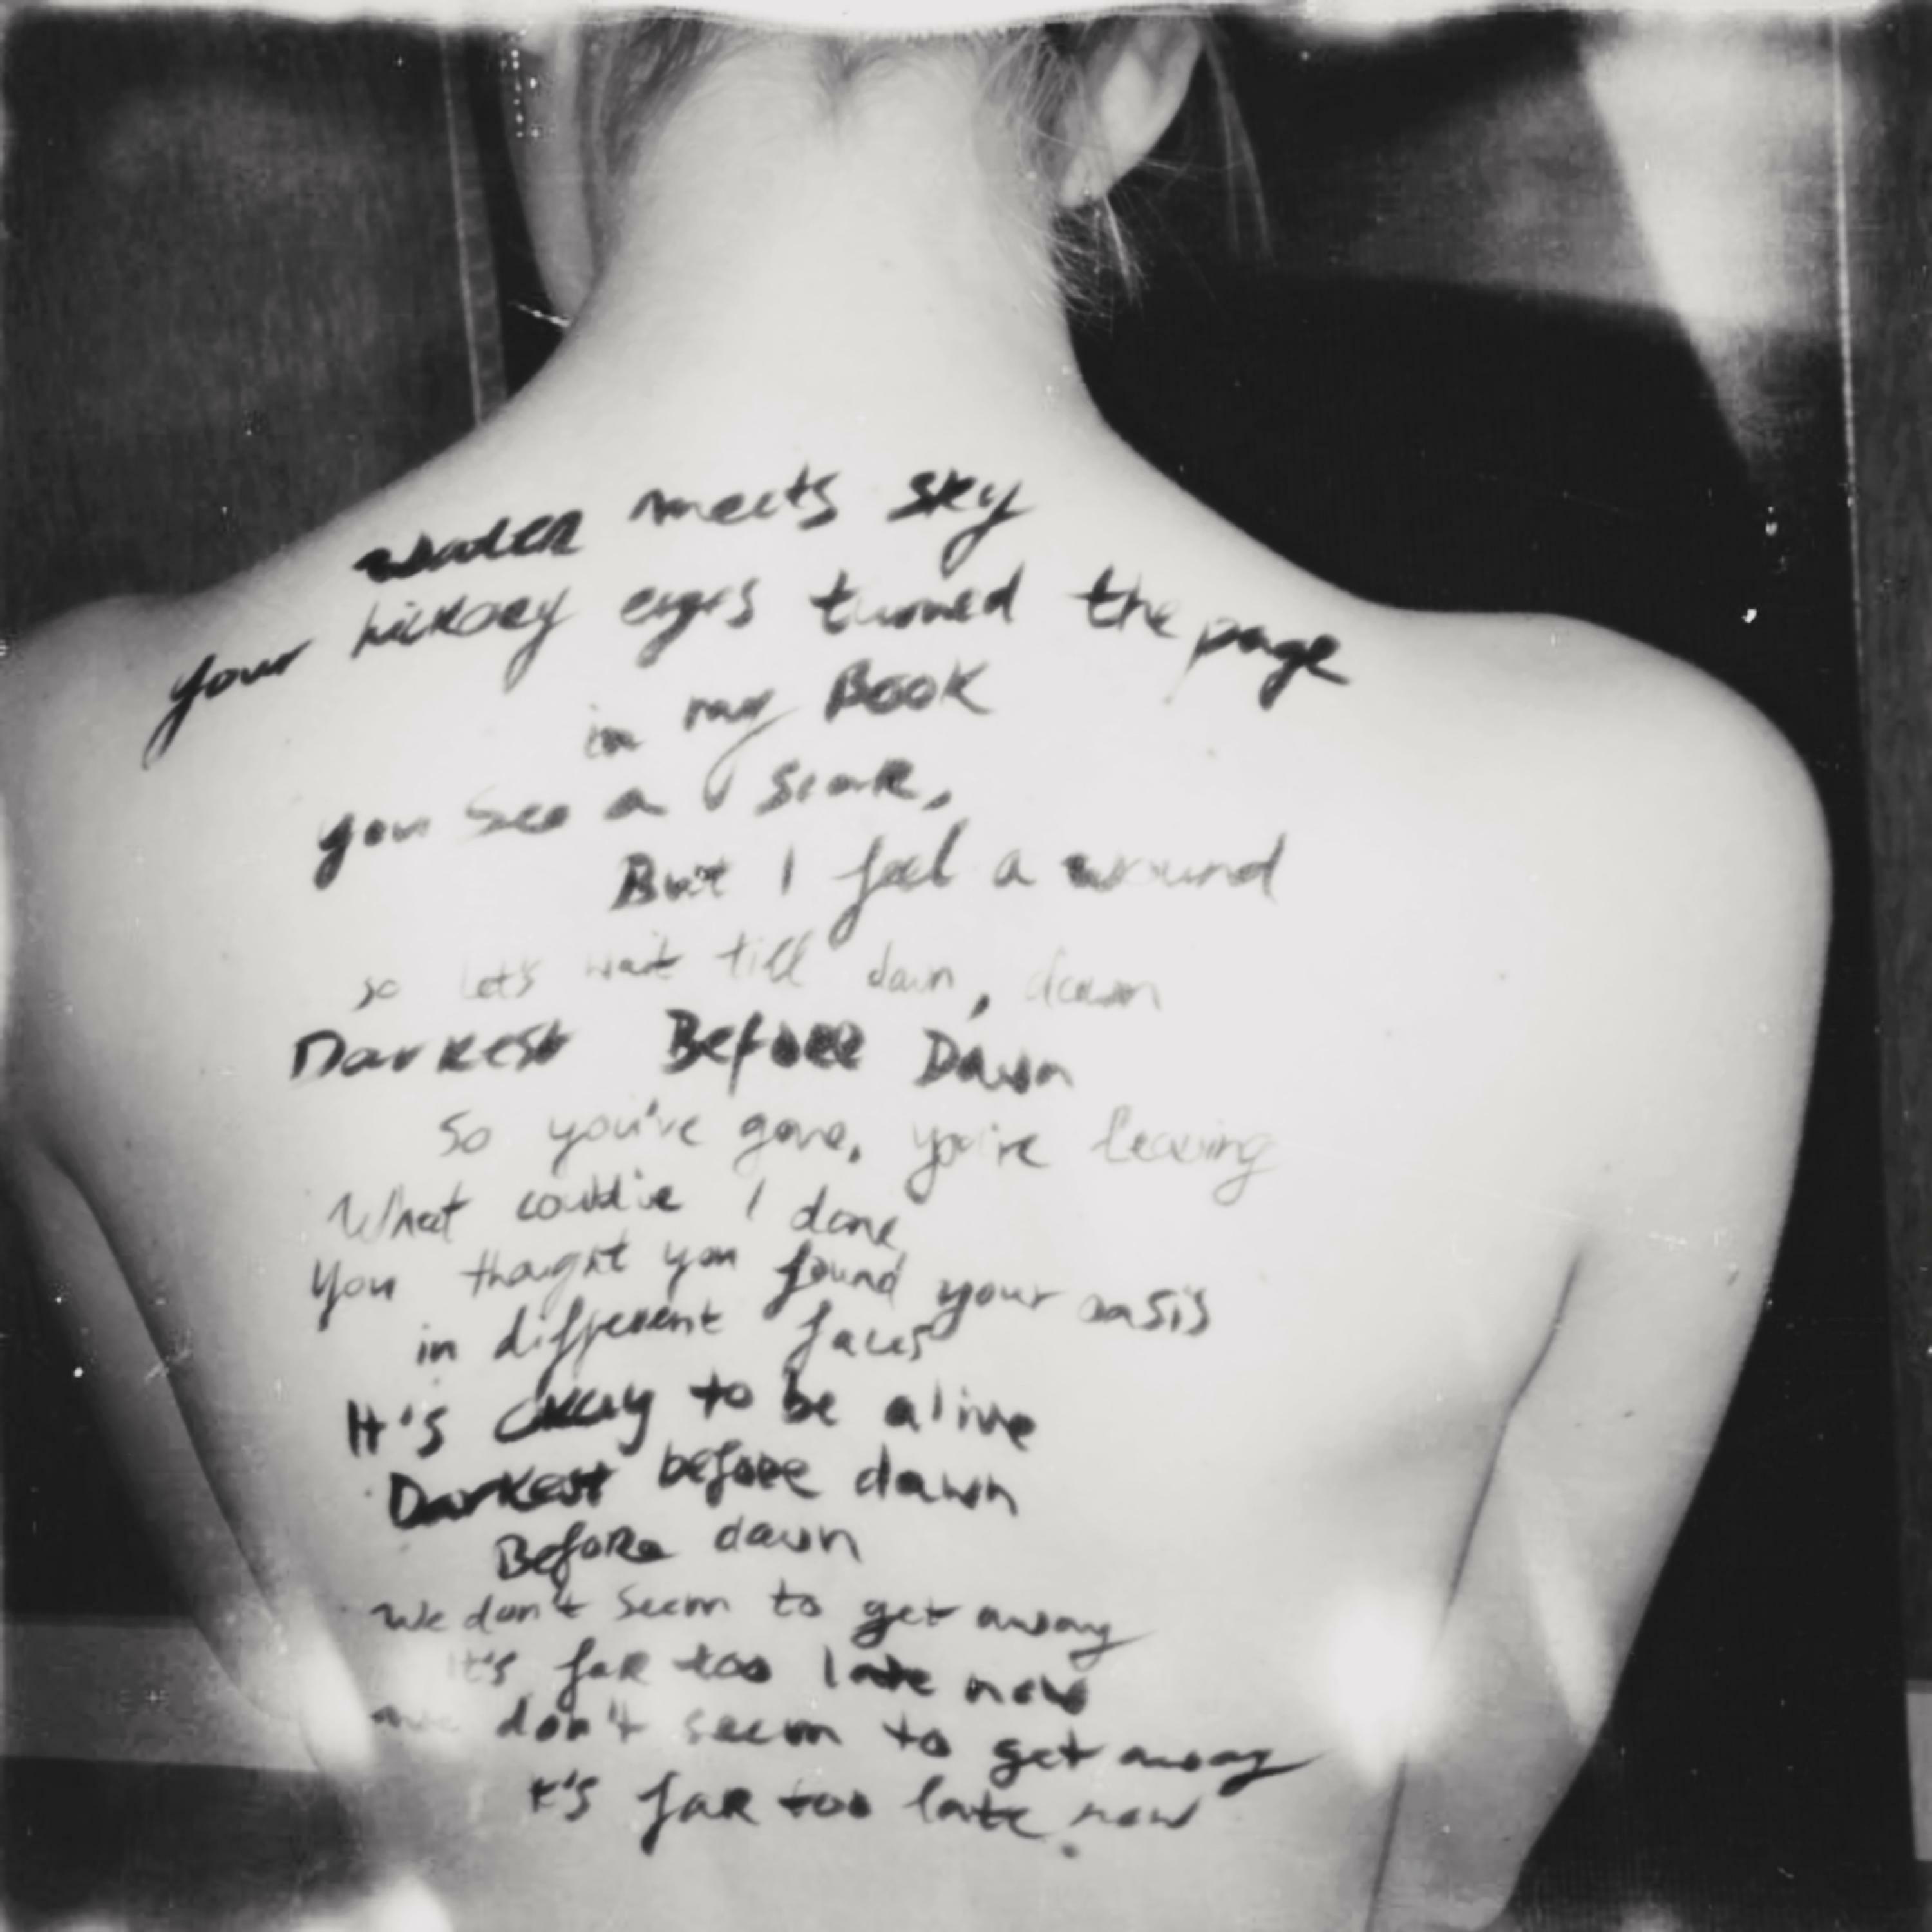 water meets sky
your hickory eyes turned the page
in my Book
you see a scar,
But I feel a wound
so let's wait till dawn, dawn
Darkest Before Dawn
So you've gone, you're leaving
What could've I done
You thought you found your oasis
in different faces
It's okay to be alive
Darkest before dawn
Before dawn
We don't seem to get away
It's far too late now
we don't seem to get away
It's far too late now